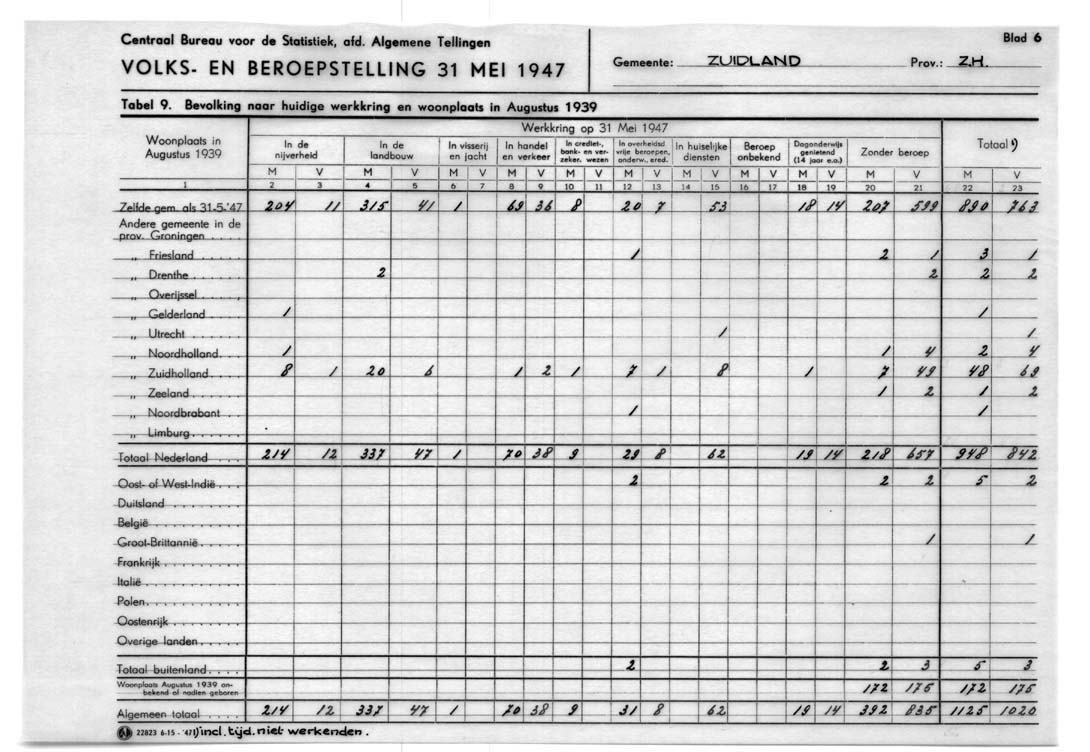 Centraal Bureau voor de Statistiek, afd. Algemene Tellingen
VOLKS- EN BEROEPSTELLING 31 MEI 1947
Gemeente: ZUIDLAND Prov.: Z.H.
Blad 6
Tabel 9. Bevolking naar huidige werkkring en woonplaats in Augustus 1939
Woonplaats in Augustus 1939
Werkkring op 31 Mei 1947
In de nijverheid
In de landbouw
In visserij en jacht
In handel en verkeer
In crediet-, bank- en verzeker. wezen
In overheidsd. vrije beroepen, onderw., ered.
In huiselijke diensten
Beroep onbekend
Dagonderwijs genietend (14 jaar e.o.)
Zonder beroep
Totaal ¹)
M V M V M V M V M V M V M V M V M V M V M V
1 2 3 4 5 6 7 8 9 10 11 12 13 14 15 16 17 18 19 20 21 22 23
Zelfde gem. als 31-5-'47 204 11 315 41 1 69 36 8 20 7 53 18 14 207 599 890 763
Andere gemeente in de
prov. Groningen . . . .
„ Friesland . . . . . 1 2 1 3 1
„ Drenthe . . . . . 2 2 2 2
„ Overijssel . . . . ,
„ Gelderland . . . . 1 1
„ Utrecht . . . . . 1 1
„ Noordholland. . . 1 1 4 2 4
„ Zuidholland. . . . 8 1 20 6 1 2 1 7 1 8 1 7 49 48 69
„ Zeeland. . . . . 1 2 1 2
„ Noordbrabant . . 1 1
„ Limburg. . . . . .
Totaal Nederland . . . 214 12 337 47 1 70 38 9 29 8 62 19 14 218 657 948 842
Oost- of West-Indië. . . 2 2 2 5 2
Duitsland . . . . . . .
België . . . . . . . .
Groot-Brittannië. . . . . 1 1
Frankrijk . . . . . . .
Italië . . . . . . . . .
Polen. . . . . . . . .
Oostenrijk . . . . . . .
Overige landen. . . . .
Totaal buitenland. . . . 2 2 3 5 3
Woonplaats Augustus 1939 onbekend of nadien geboren 172 175 172 175
Algemeen totaal . . . . 214 12 337 47 1 70 38 9 31 8 62 19 14 392 835 1125 1020
22823 6-15 - '47 ¹) incl. tijd. niet werkenden.